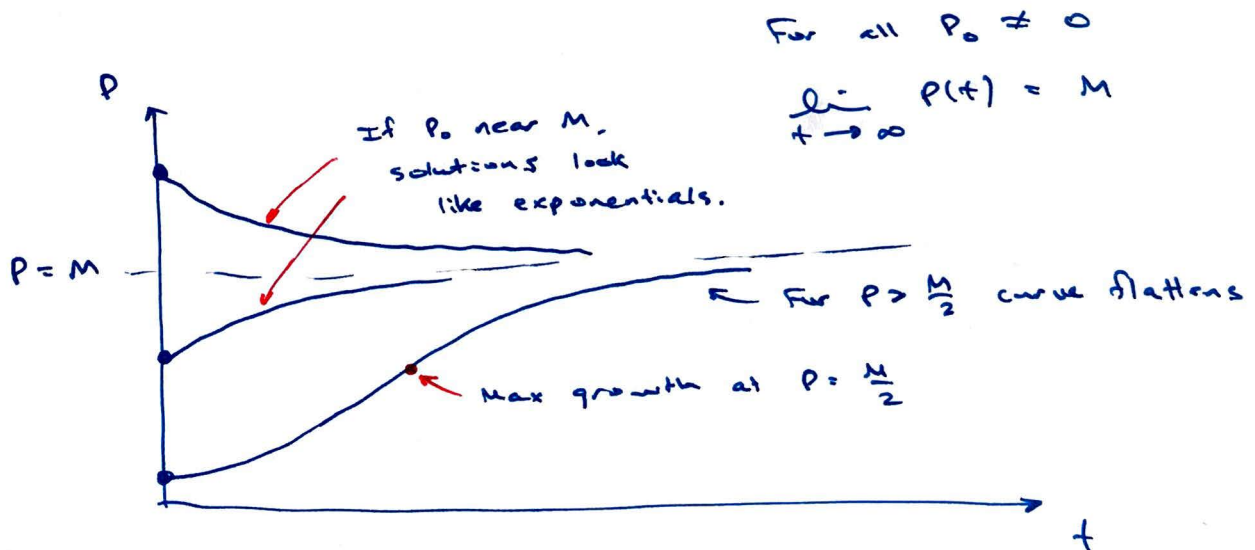 For all P₀ ≠ 0
lim P(t) = M
t → ∞
P
If P₀ near M,
solutions look
like exponentials.
P = M
For P > M/2 curve flattens
Max growth at P = M/2
t